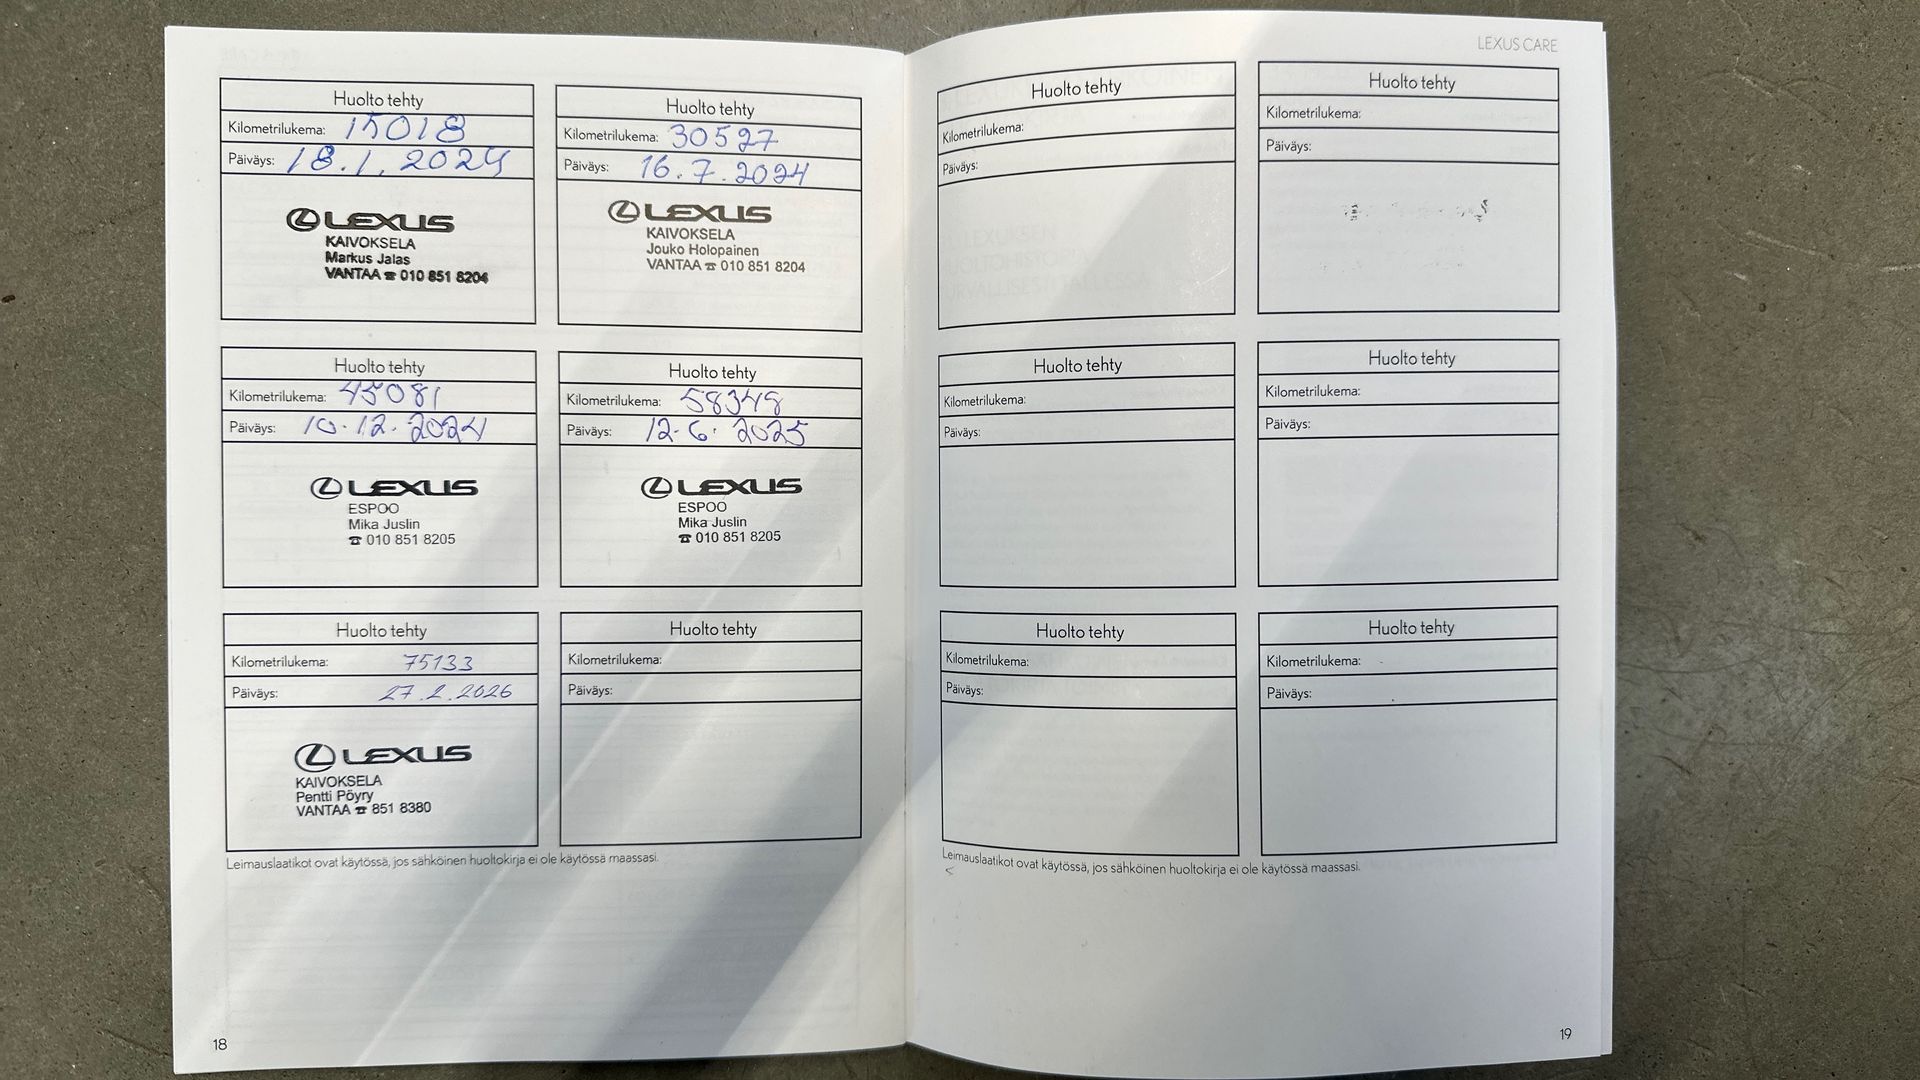 Huolto tehty
Kilometrilukema: 15018
Päiväys: 18.1.2024
LEXUS
KAIVOKSELA
Markus Jalas
VANTAA ☎ 010 851 8204
Huolto tehty
Kilometrilukema: 30527
Päiväys: 16.7.2024
LEXUS
KAIVOKSELA
Jouko Holopainen
VANTAA ☎ 010 851 8204
Huolto tehty
Kilometrilukema: 45081
Päiväys: 10.12.2024
LEXUS
ESPOO
Mika Juslin
☎ 010 851 8205
Huolto tehty
Kilometrilukema: 58348
Päiväys: 12.6.2025
LEXUS
ESPOO
Mika Juslin
☎ 010 851 8205
Huolto tehty
Kilometrilukema: 75133
Päiväys: 27.2.2026
LEXUS
KAIVOKSELA
Pentti Pöyry
VANTAA ☎ 851 8380
Huolto tehty
Kilometrilukema:
Päiväys:
Leimauslaatikot ovat käytössä, jos sähköinen huoltokirja ei ole käytössä maassasi.
18
LEXUS CARE
Huolto tehty
Kilometrilukema:
Päiväys:
Huolto tehty
Kilometrilukema:
Päiväys:
Huolto tehty
Kilometrilukema:
Päiväys:
Huolto tehty
Kilometrilukema:
Päiväys:
Huolto tehty
Kilometrilukema:
Päiväys:
Huolto tehty
Kilometrilukema:
Päiväys:
Leimauslaatikot ovat käytössä, jos sähköinen huoltokirja ei ole käytössä maassasi.
19